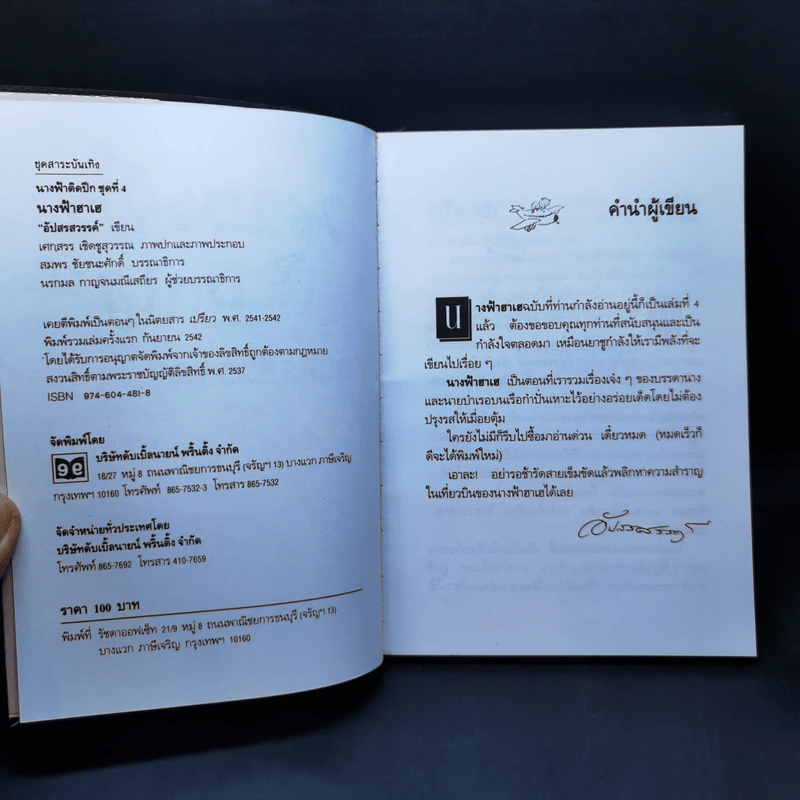 ชุดสาระบันเทิง
นางฟ้าติดปีก ชุดที่ 4
นางฟ้าฮาเฮ
"อัปสรสวรรค์" เขียน
เศกสรร เชิดชูสุวรรณ ภาพปกและภาพประกอบ
สมพร ชัยชนะศักดิ์ บรรณาธิการ
นรกมล กาญจนมณีเสถียร ผู้ช่วยบรรณาธิการ
เคยตีพิมพ์เป็นตอนๆ ในนิตยสาร เปรียว พ.ศ. 2541-2542
พิมพ์รวมเล่มครั้งแรก กันยายน 2542
โดยได้รับการอนุญาตจัดพิมพ์จากเจ้าของลิขสิทธิ์ถูกต้องตามกฎหมาย
สงวนสิทธิ์ตามพระราชบัญญัติลิขสิทธิ์ พ.ศ. 2537
ISBN 974-604-481-8
จัดพิมพ์โดย
บริษัทดับเบิ้ลนายน์ พริ้นติ้ง จำกัด
18/27 หมู่ 8 ถนนพาณิชยการธนบุรี (จรัญฯ 13) บางแวก ภาษีเจริญ
กรุงเทพฯ 10160 โทรศัพท์ 865-7532-3 โทรสาร 865-7532
จัดจำหน่ายทั่วประเทศโดย
บริษัทดับเบิ้ลนายน์ พริ้นติ้ง จำกัด
โทรศัพท์ 865-7692 โทรสาร 410-7659
ราคา 100 บาท
พิมพ์ที่ รัชดาออฟเซ็ท 21/9 หมู่ 8 ถนนพาณิชยการธนบุรี (จรัญฯ 13)
บางแวก ภาษีเจริญ กรุงเทพฯ 10160
คำนำผู้เขียน
นางฟ้าฮาเฮฉบับที่ท่านกำลังอ่านอยู่นี้ก็เป็นเล่มที่ 4
แล้ว ต้องขอขอบคุณทุกท่านที่สนับสนุนและเป็น
กำลังใจตลอดมา เหมือนยาชูกำลังให้เรามีพลังที่จะ
เขียนไปเรื่อย ๆ
นางฟ้าฮาเฮ เป็นตอนที่เรารวมเรื่องเจ๋ง ๆ ของบรรดานาง
และนายบำเรอบนเรือกำปั่นเหาะไว้อย่างอร่อยเด็ดโดยไม่ต้อง
ปรุงรสให้เมื่อยตุ้ม
ใครยังไม่มีก็รีบไปซื้อมาอ่านด่วน เดี๋ยวหมด (หมดเร็วก็
ดีจะได้พิมพ์ใหม่)
เอาละ! อย่ารอช้ารัดสายเข็มขัดแล้วพลิกหาความสำราญ
ในเที่ยวบินของนางฟ้าฮาเฮได้เลย
อัปสรสวรรค์